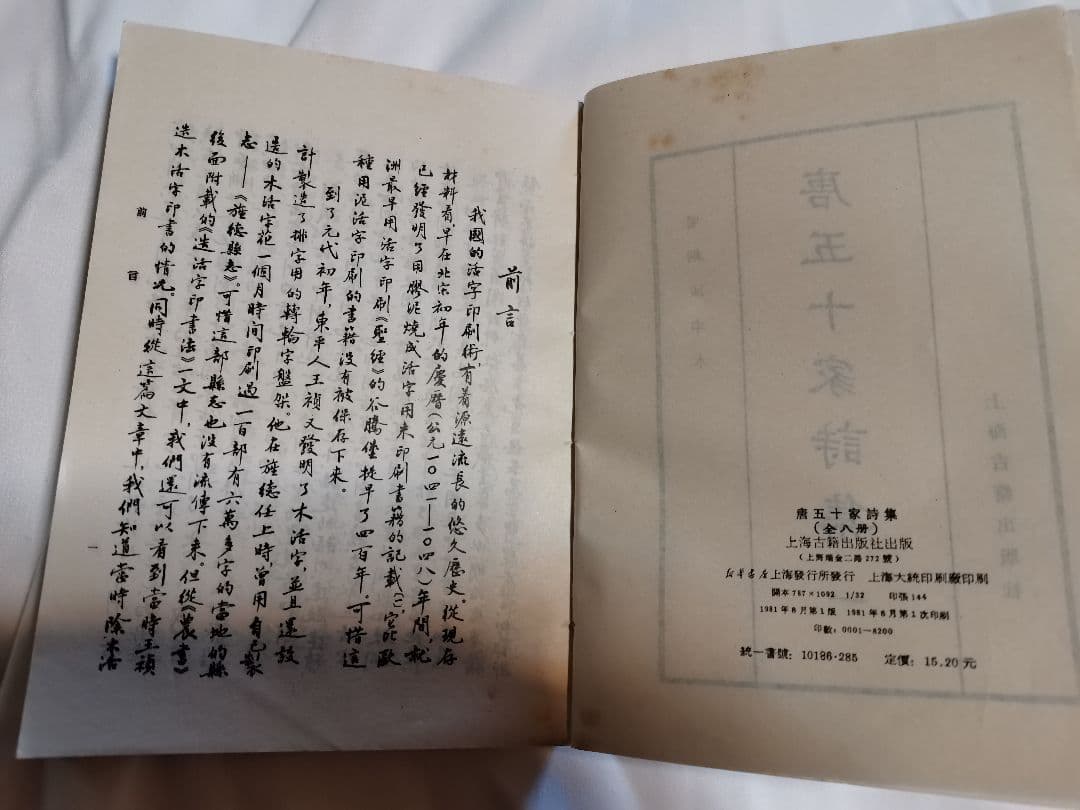 唐五十家詩集
(全八册)
上海古籍出版社出版
(上海瑞金二路272號)
新华书店上海發行所發行 上海大統印刷廠印刷
開本 787×1092 1/32 印張 144
1981年8月第1版 1981年8月第1次印刷
印數:0001—8200
統一書號:10186·285 定價:15.20元
前言
我國的活字印刷術,有着源遠流長的悠久歷史。從現存
材料看,早在北宋初年的慶曆(公元一〇四一——一〇四八)年間,就
已經發明了用膠泥燒成活字用來印刷書籍的記載(一),它比歐
洲最早用活字印刷《聖經》的谷騰堡提早了四百年。可惜這
種用泥活字印刷的書籍沒有被保存下來。
到了元代初年,東平人王禎又發明了木活字,並且還設
計製造了排字用的轉輪字盤架。他在旌德任上時,曾用自己製
造的木活字花一個月時間印刷過一百部有六萬多字的當地的縣
志——《旌德縣志》。可惜這部縣志也沒有流傳下來。但從《農書》
後面附載的《造活字印書法》一文中,我們還可以看到當時王禎
造木活字印書的情况。同時從這篇文章中,我們知道當時除木活
前言
一